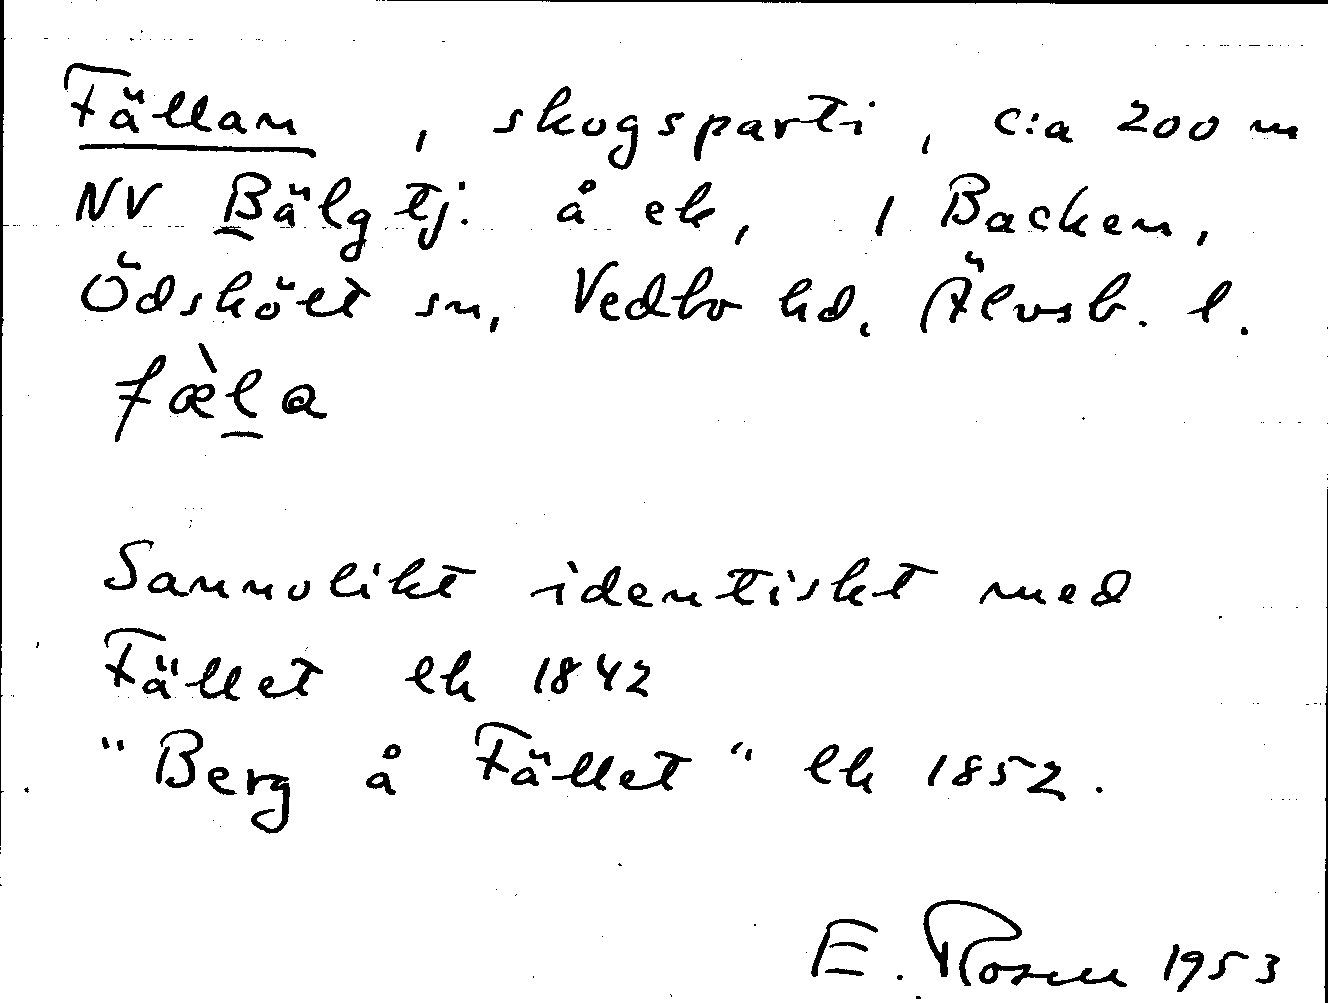 Fällan, skogsparti, c:a 200 m
NV Bälgtj. å ek, 1 Backen,
Ödskölt sn, Vedbo hd. Älvsb. l.
fæ̀la
Sannolikt identiskt med
Fället lk 1842
"Berg å Fället" lk 1852.
E. Rosen 1953